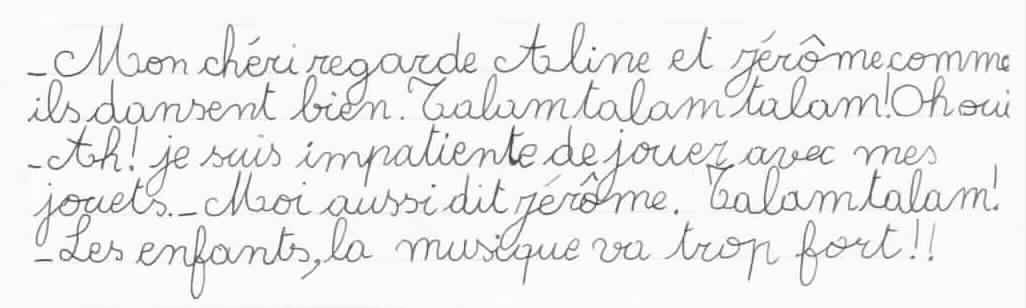 _Mon chéri regarde Aline et jérôme comme
ils dansent bien. Talam talam talam! Oh oui
_Ah! je suis impatiente de jouer avec mes
jouets._Moi aussi dit jérôme. Talam talam!
_Les enfants, la musique va trop fort!!